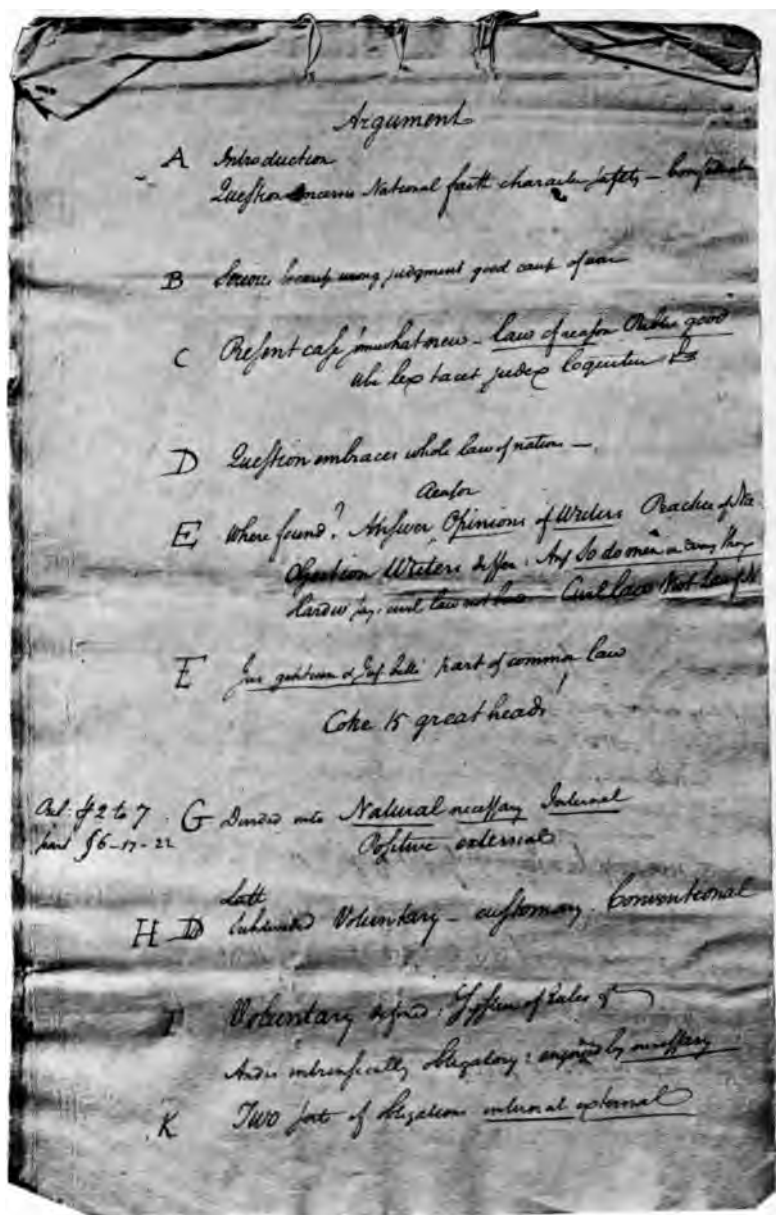 Argument
A Introduction
Question concerns National faith character safety – Confederation
B Serious because wrong judgment good cause of war
C Present case somewhat new – law of reason Public good
ubi lex tacet judex loquitur
D Question embraces whole law of nations –
Reason
E Where found? Answer Opinions of Writers Practice of
Objection Writers differ: Ans So do men in every thing
civil law not Civil law Not law of
E Jus gentium part of common law
Coke 15 great heads
§2 to 7 G Divided into Natural necessary Internal
§6–17–22 Positive external
H D Latt Subdivided Voluntary – customary. Conventional
I Voluntary defined: System of Rules
And is intrinsically obligatory: enjoined by necessary
K Two sorts of obligations internal external